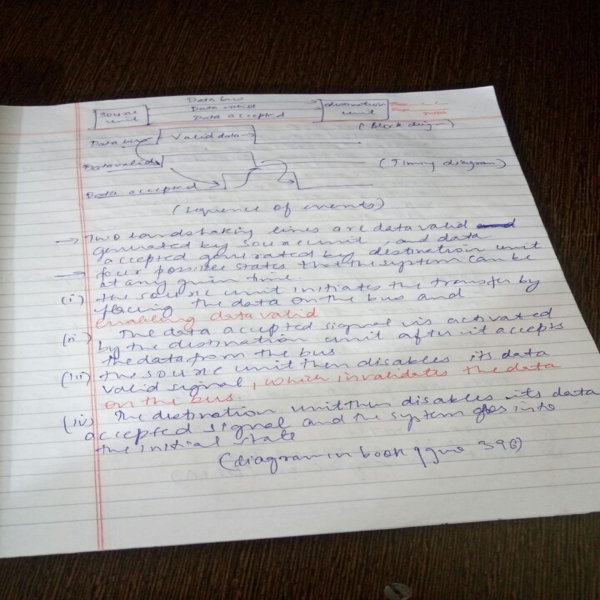 Data bus
Source unit
Data valid
destination unit
Data accepted
(Block diagram)
Data bus
Valid data
Data valid
(Timing diagram)
Data accepted
(Sequence of events)
→ Two handshaking lines are data valid
generated by source unit, and data
accepted generated by destination unit
→ four possible states that the system can be
at any given time
(i) the source unit initiates the transfer by
placing the data on the bus and
enabling data valid
(ii) The data accepted signal is activated
by the destination unit after it accepts
the data from the bus
(iii) the source unit then disables its data
valid signal, which invalidates the data
on the bus.
(iv) The destination unit then disables its data
accepted signal and the system goes into
the initial state
(diagram in book 396)